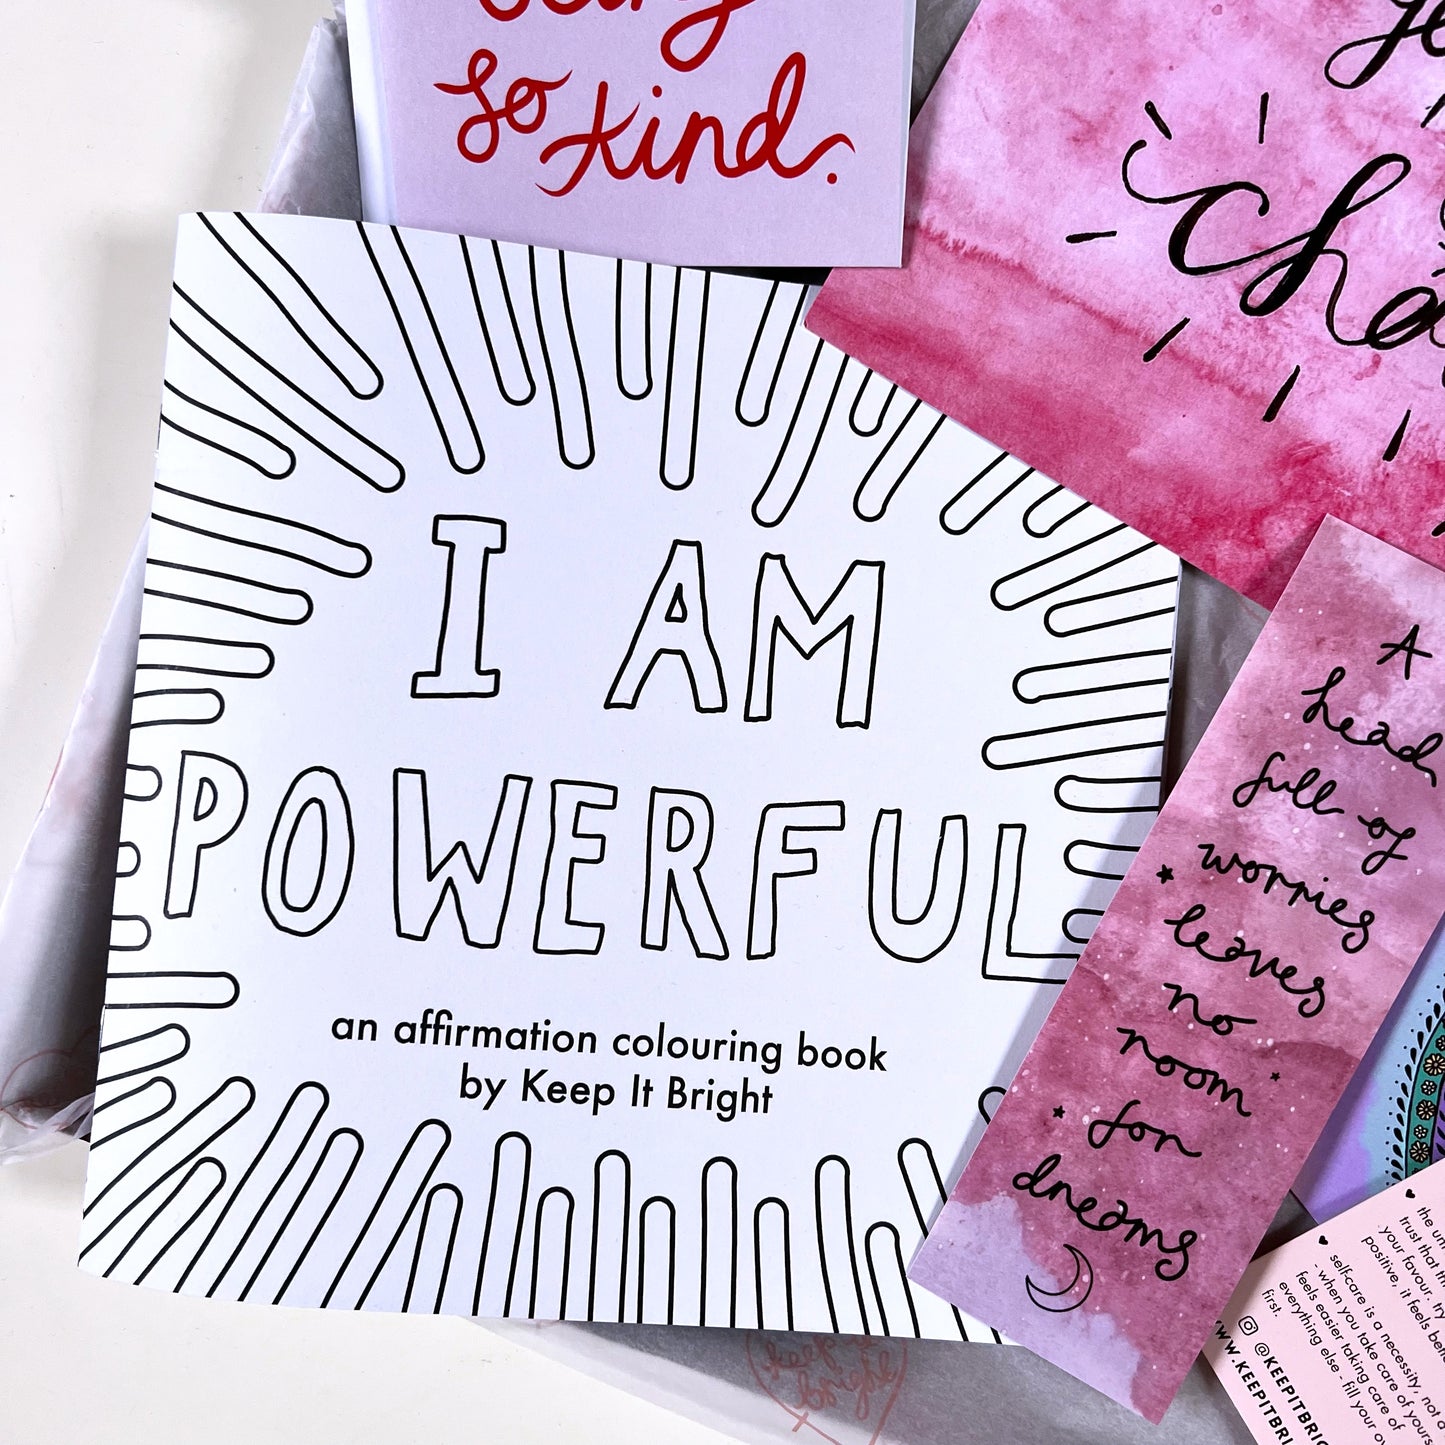 so kind.
I AM
POWERFUL
an affirmation colouring book
by Keep It Bright
A
head
full of
worries
leaves
no
room
for
dreams
self-care is a necessity, not a
- when you take care of yours
feels easier taking care of
everything else - fill your o
first.
@KEEPITBRI
WWW.KEEPITBRI
keep it
bright